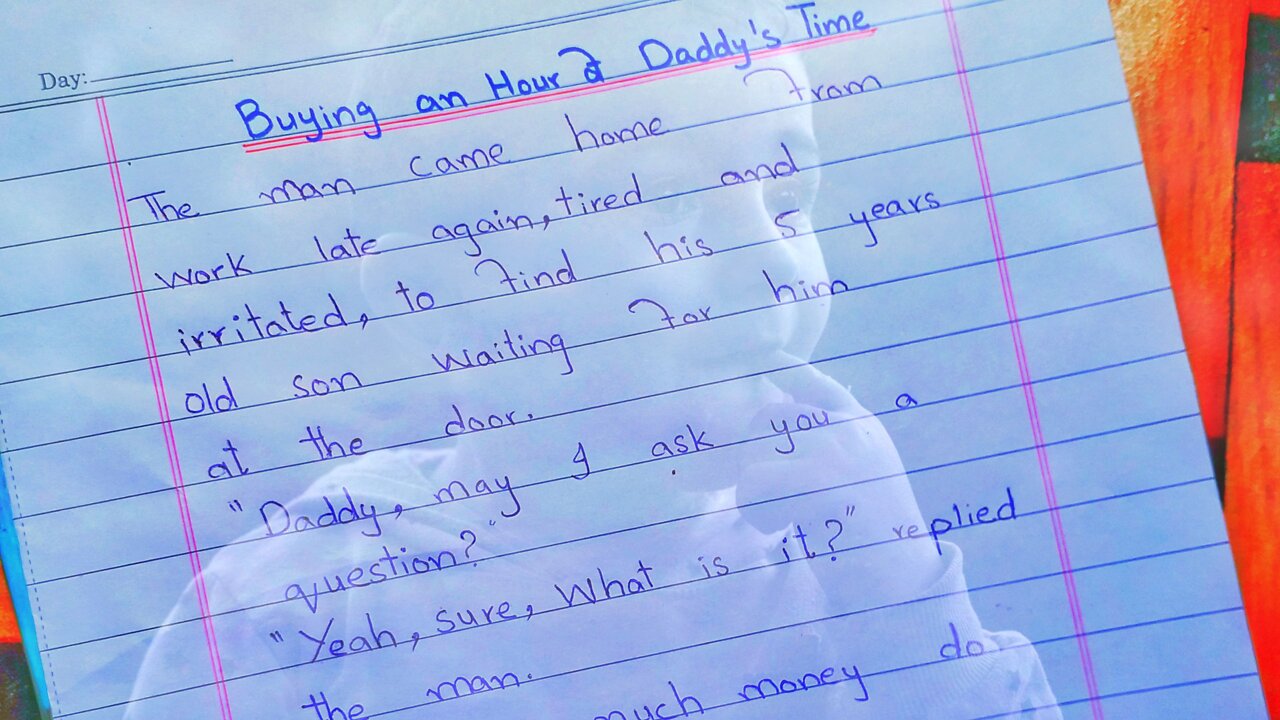 Day:
Buying an Hour of Daddy's Time
The man came home from
work late again, tired and
irritated, to find his 5 years
old son waiting for him
at the door.
"Daddy, may I ask you a
question?"
"Yeah, sure, What is it?" replied
the man.
much money do